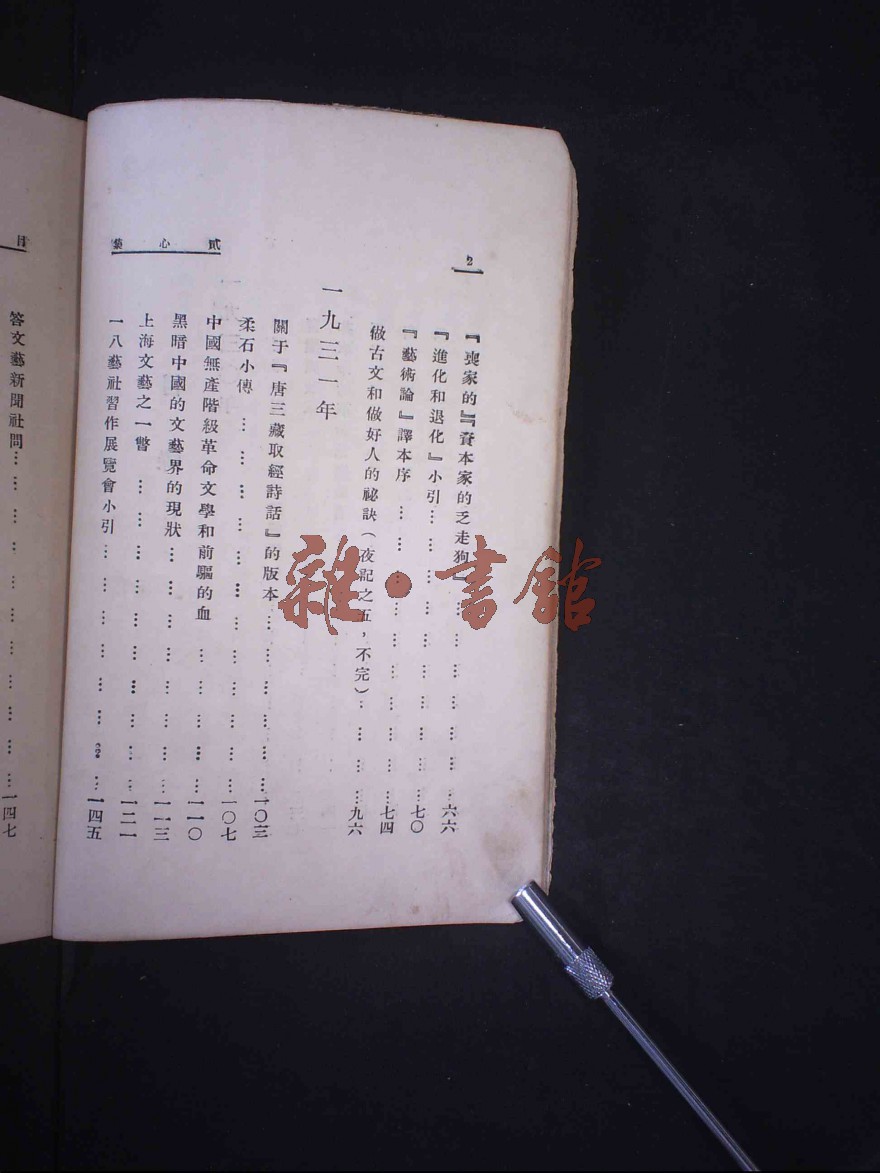 2
貳心集
『喪家的』『資本家的乏走狗』………………………六六
『進化和退化』小引………………………七〇
『藝術論』譯本序………………………七四
做古文和做好人的祕訣(夜記之五，不完)………………九六
一九三一年
關于『唐三藏取經詩話』的版本………………一〇三
柔石小傳………………………一〇七
中國無產階級革命文學和前驅的血………………一一〇
黑暗中國的文藝界的現狀………………………一一三
上海文藝之一瞥………………………一二一
一八藝社習作展覽會小引………………………一四五
目
答文藝新聞社問………………………一四七
雜·書館